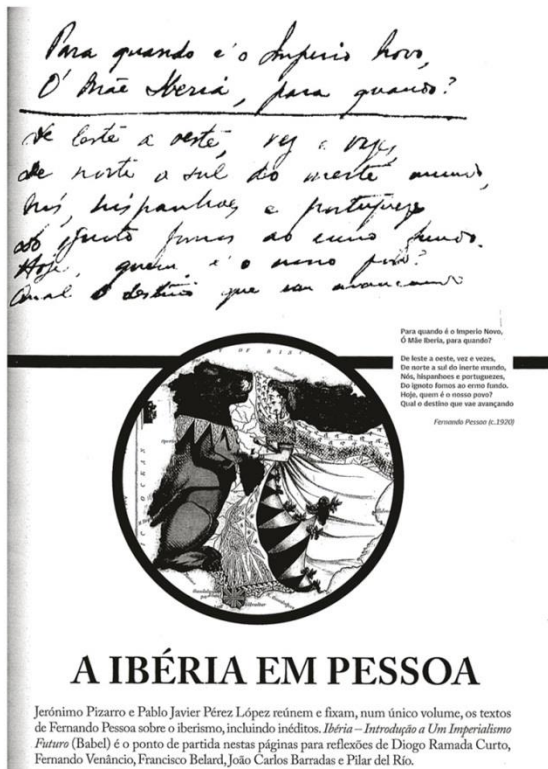 Para quando é o Imperio Novo,
Ó Mãe Iberia, para quando?
De leste a oeste, vez e vezes,
de norte a sul do inerte mundo,
Nós, hispanhoes e portuguezes
do ignoto fomos ao ermo fundo.
Hoje, quem é o nosso povo?
Qual o destino que vae avançando
Para quando é o Imperio Novo,
Ó Mãe Iberia, para quando?
De leste a oeste, vez e vezes,
De norte a sul do inerte mundo,
Nós, hispanhoes e portuguezes,
Do ignoto fomos ao ermo fundo.
Hoje, quem é o nosso povo?
Qual o destino que vae avançando
Fernando Pessoa (c.1920)
A IBÉRIA EM PESSOA
Jerónimo Pizarro e Pablo Javier Pérez López reúnem e fixam, num único volume, os textos
de Fernando Pessoa sobre o iberismo, incluindo inéditos. Ibéria – Introdução a Um Imperialismo
Futuro (Babel) é o ponto de partida nestas páginas para reflexões de Diogo Ramada Curto,
Fernando Venâncio, Francisco Belard, João Carlos Barradas e Pilar del Río.